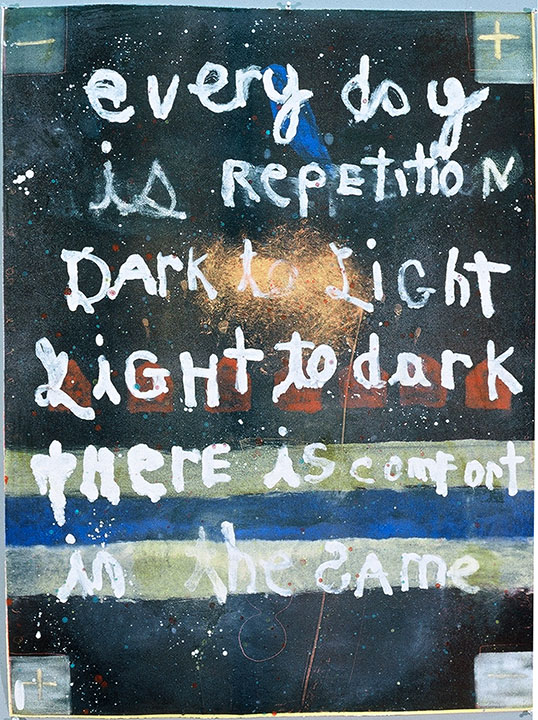 − +
every day
is REPETITION
DARK to LiGht
LiGHt to dark
tHERE is comfort
in the SAme
+ −